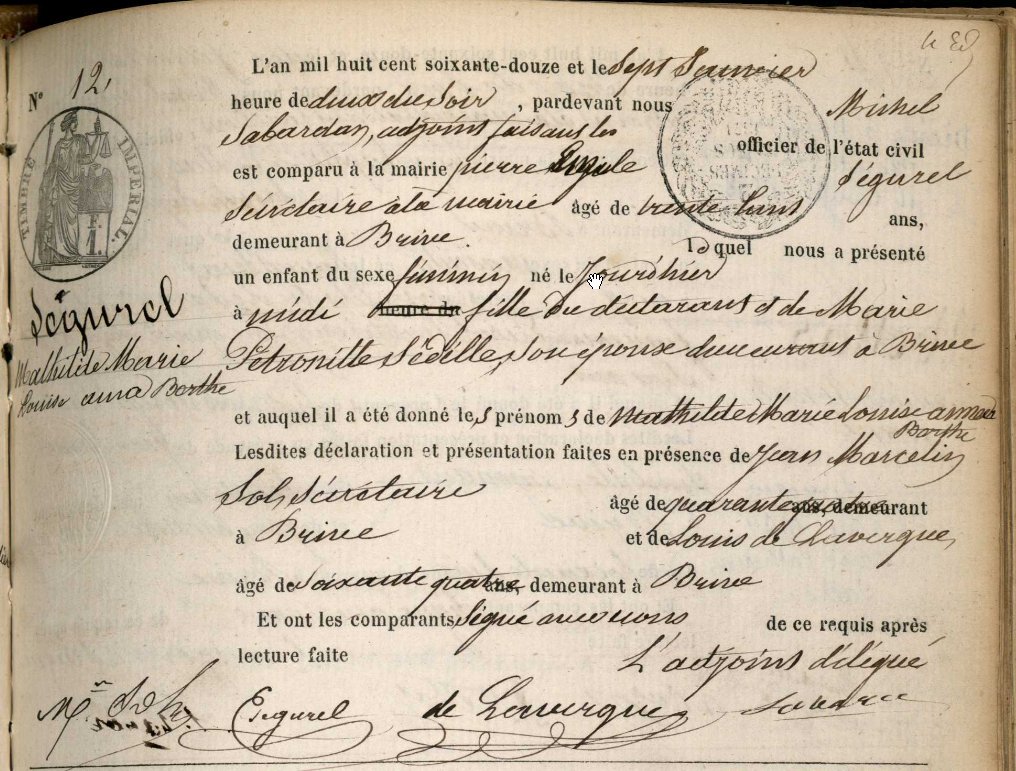 N° 12.
TIMBRE IMPÉRIAL.
L'an mil huit cent soixante-douze et le Sept Janvier
heure de deux du Soir, pardevant nous Michel
Sabardan, adjoint faisant les
officier de l'état civil
est comparu à la mairie pierre Ségurel
Sécrétaire à la mairie âgé de trente huit ans,
demeurant à Brive. lequel nous a présenté
un enfant du sexe féminin né le Jourd'hier
à midi heure du fille du déclarant et de Marie
Petronille Sédille, son épouse demeurant à Brive
Ségurel
Mathilde Marie
Louise Berthe
et auquel il a été donné les prénoms de Mathilde Marie Louise
Berthe
Lesdites déclaration et présentation faites en présence de Jean Marcelin
Sol, Sécrétaire âgé de quarante quatre ans, demeurant
à Brive et de Louis de Lavergne,
âgé de Soixante quatre ans, demeurant à Brive
Et ont les comparants Signé avec nous de ce requis après
lecture faite L'adjoint délégué
Ségurel de Lavergne